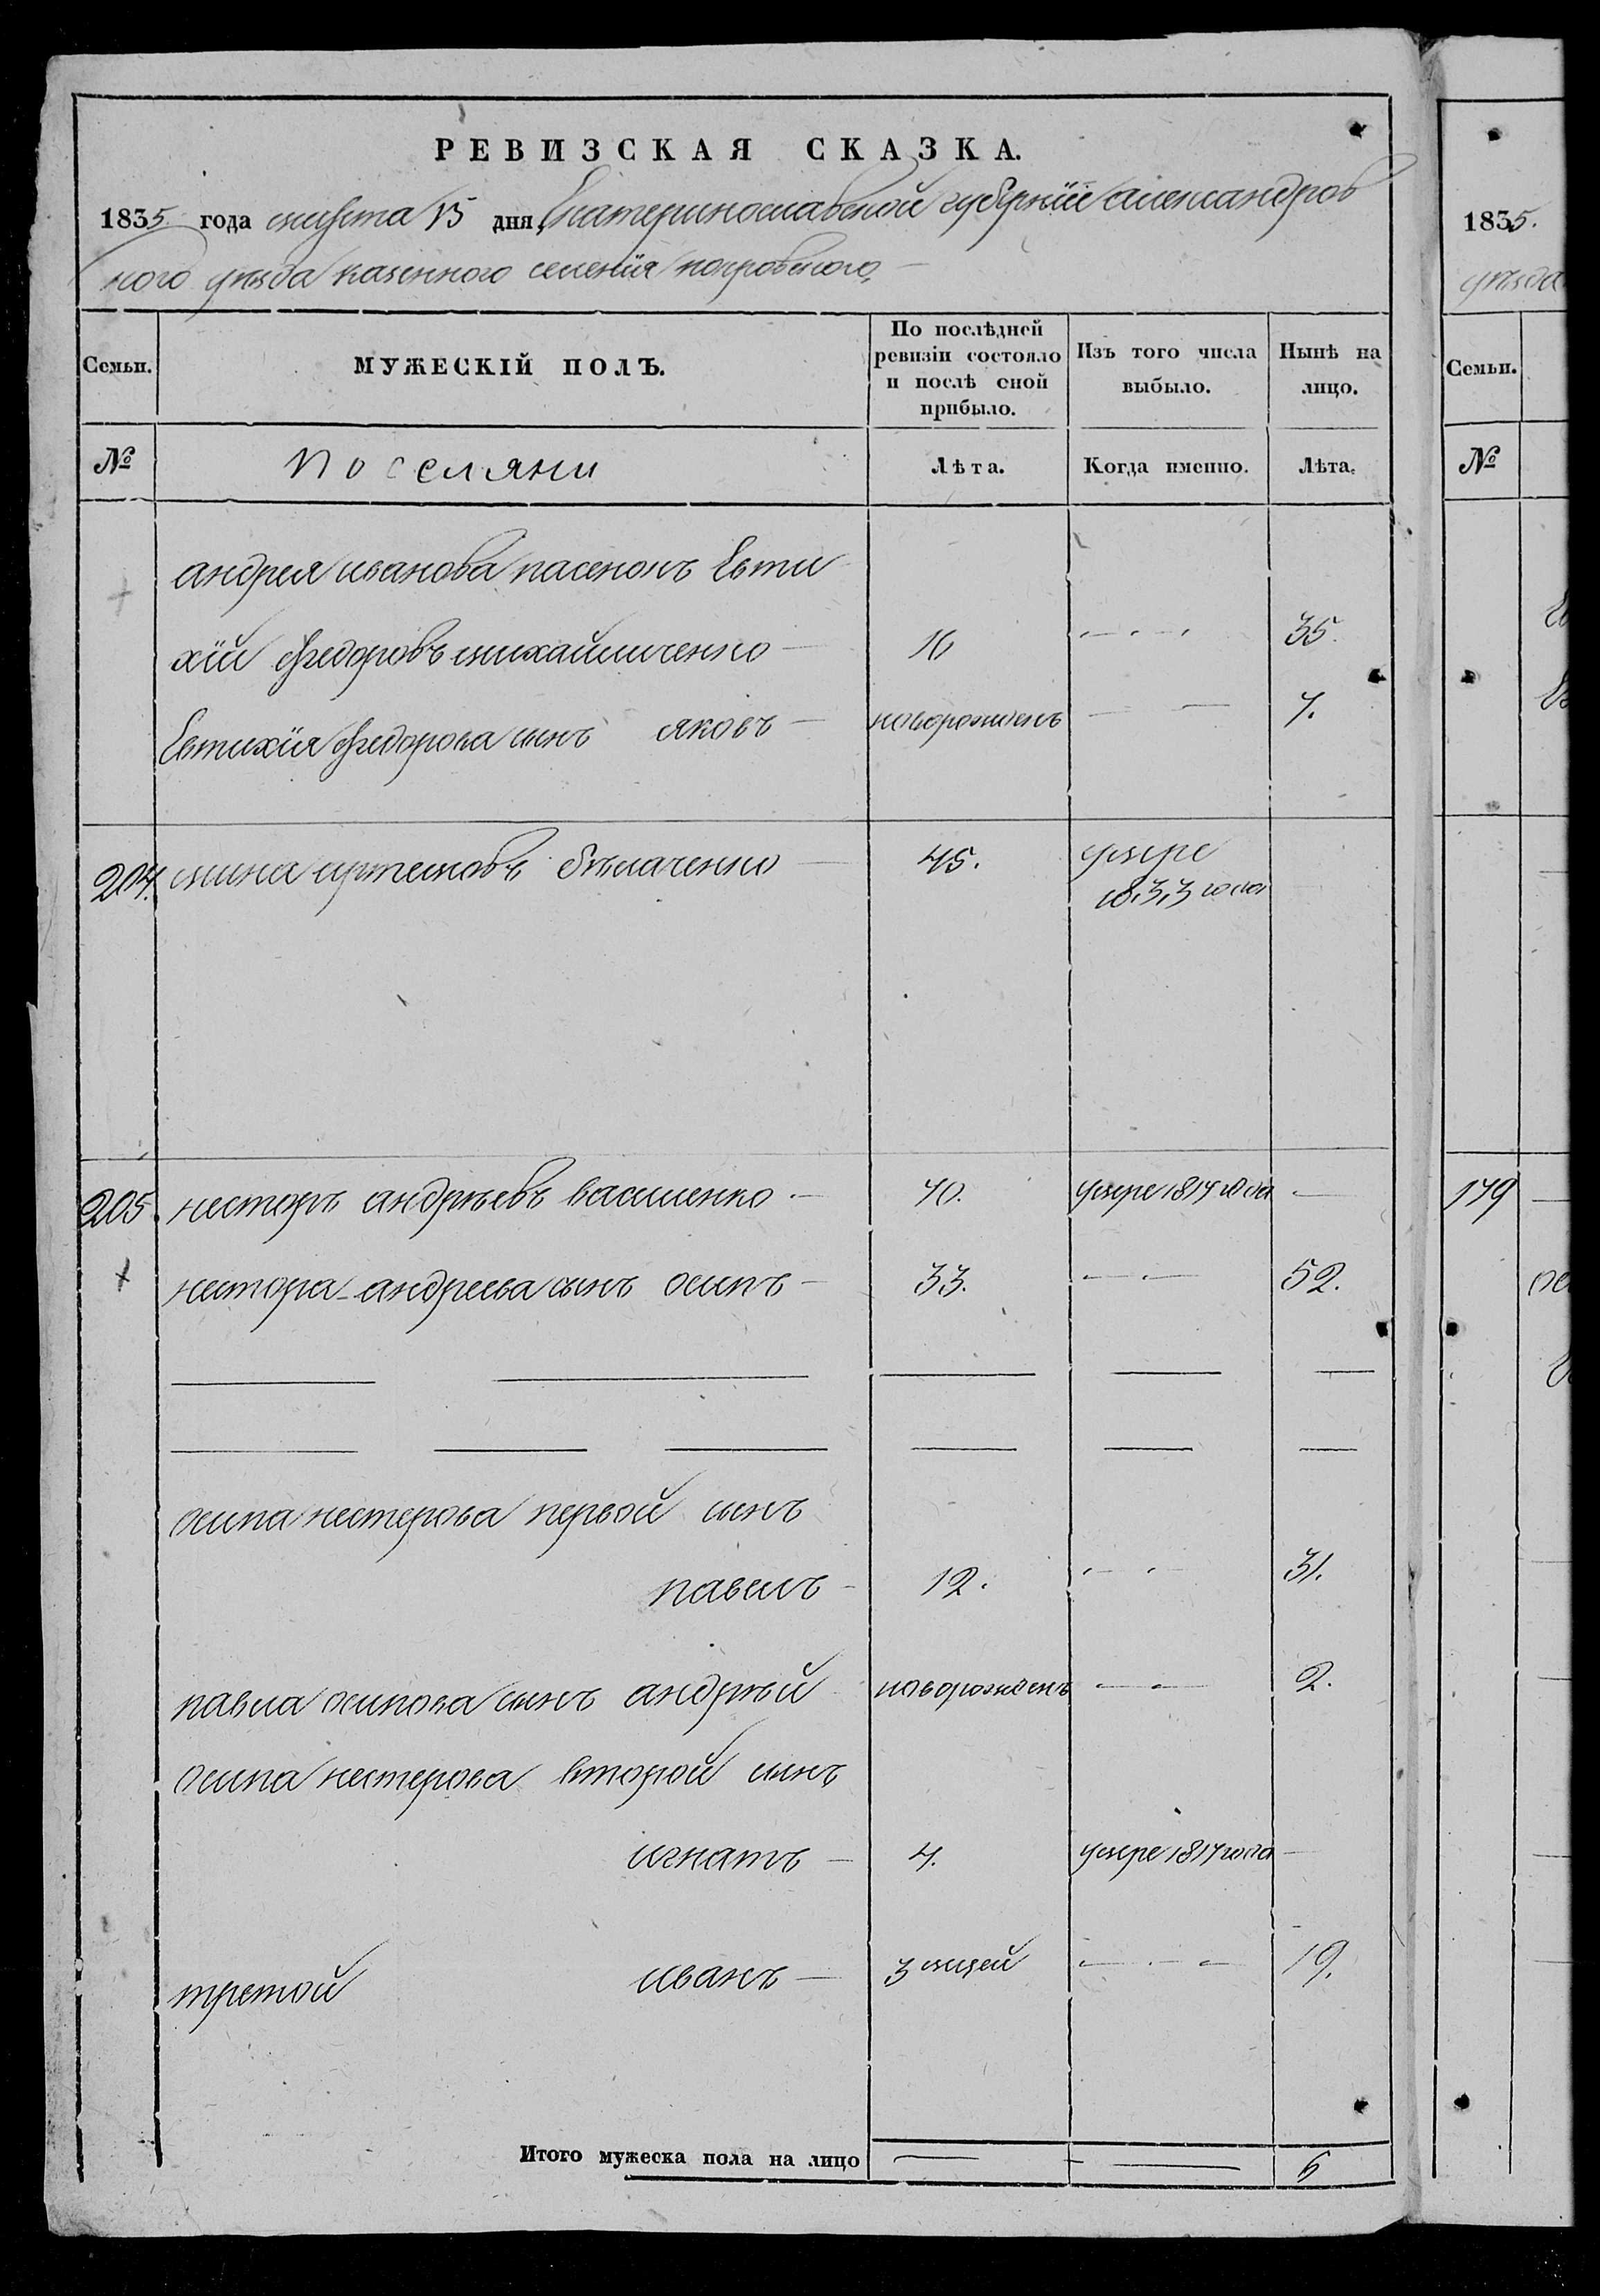 РЕВИЗСКАЯ СКАЗКА.
1835 года марта 15 дня Екатеринославской губернїи александров
ного уѣзда казенного селенїя покровского
Семьи.
МУЖЕСКІЙ ПОЛЪ.
По послѣдней ревизіи состояло и послѣ оной прибыло.
Изъ того числа выбыло.
Нынѣ на лицо.
№
поселяни
Лѣта.
Когда именно.
Лѣта.
андрея иванова пасенокъ Евти
хїй федоровъ михайличенко 16 35.
Евтихїя федорова сынъ яковъ новорожденъ 7.
204. мина артемовъ 45. умре
1833 года
205. несторъ андрѣевъ василенко 40. умре 1817 года
нестора андреева сынъ осипъ 33. 52.
осипа нестерова первой сынъ
павелъ 12. 31.
павла осипова сынъ андрѣй новорожденъ 2.
осипа нестерова второй сынъ
игнатъ 4. умре 1817 года
третой иванъ 3 мцей 19.
Итого мужеска пола на лицо 6
1835.
уѣзда
Семьи.
№
179